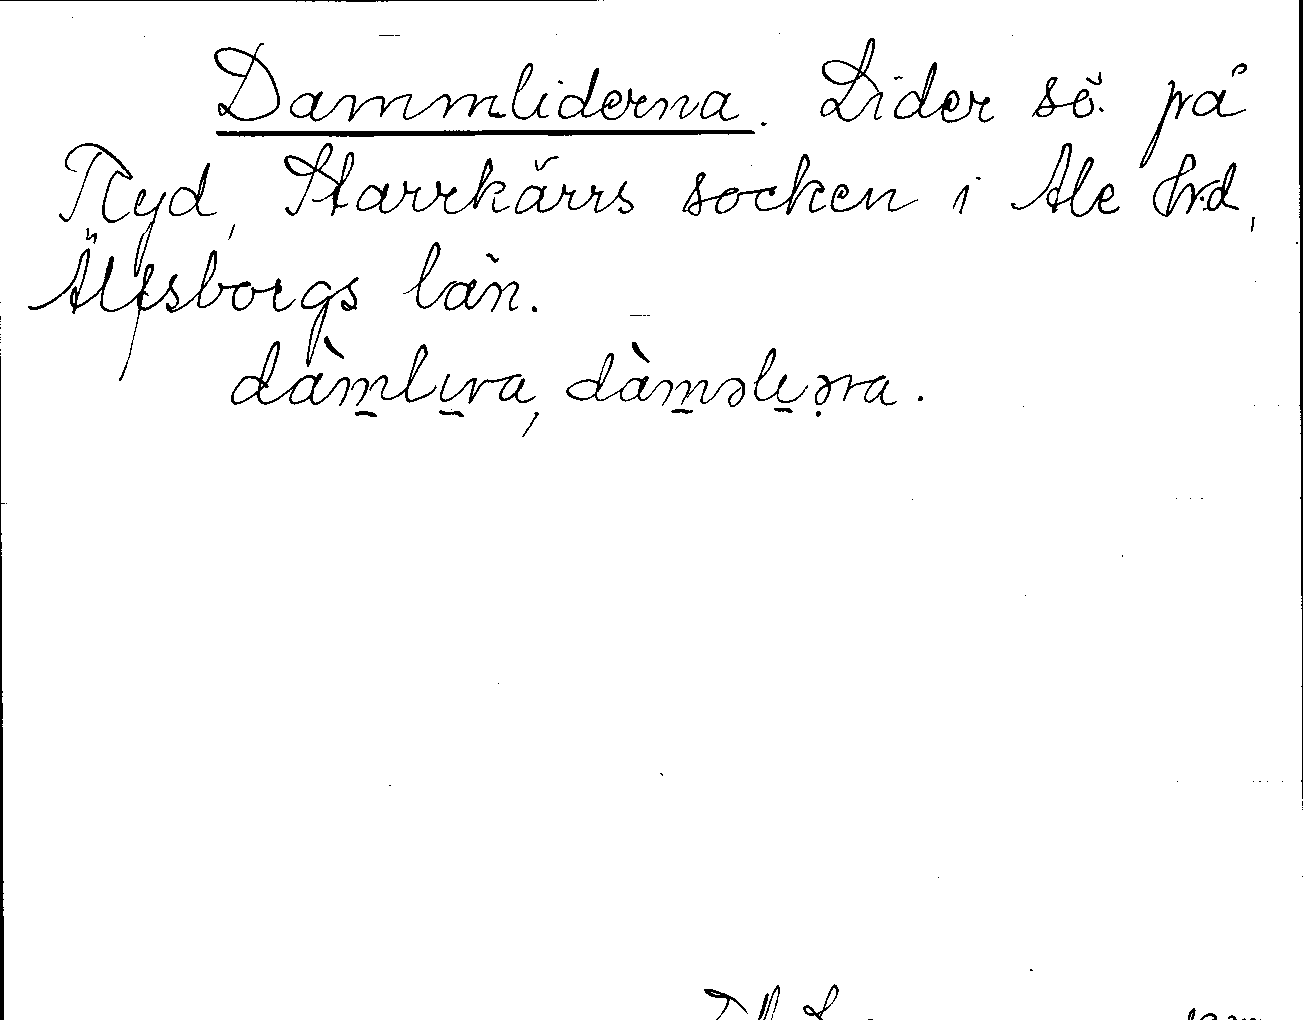 Dammliderna. Lider sö. på
Ryd, Starrkärrs socken i Ale hrd,
Älfsborgs län.
dàm̲lı̲ra, dàm̲əlı̲ə̣ra.